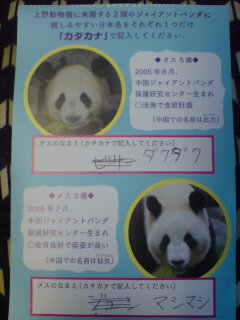 上野動物園に来園する2頭のジャイアントパンダに
親しみやすい日本名をそれぞれ1つだけ
「カタカナ」で記入してください。
◆オス5歳◆
2005年8月、
中国ジャイアントパンダ
保護研究センター生まれ
○活発で食欲旺盛
(中国での名前は比力)
オスのなまえ(カタカナで記入してください)
ダクダク
◆メス5歳◆
2005年7月、
中国ジャイアントパンダ
保護研究センター生まれ
○発育良好で容姿が良い
(中国での名前は仙女)
メスのなまえ(カタカナで記入してください)
マシマシ